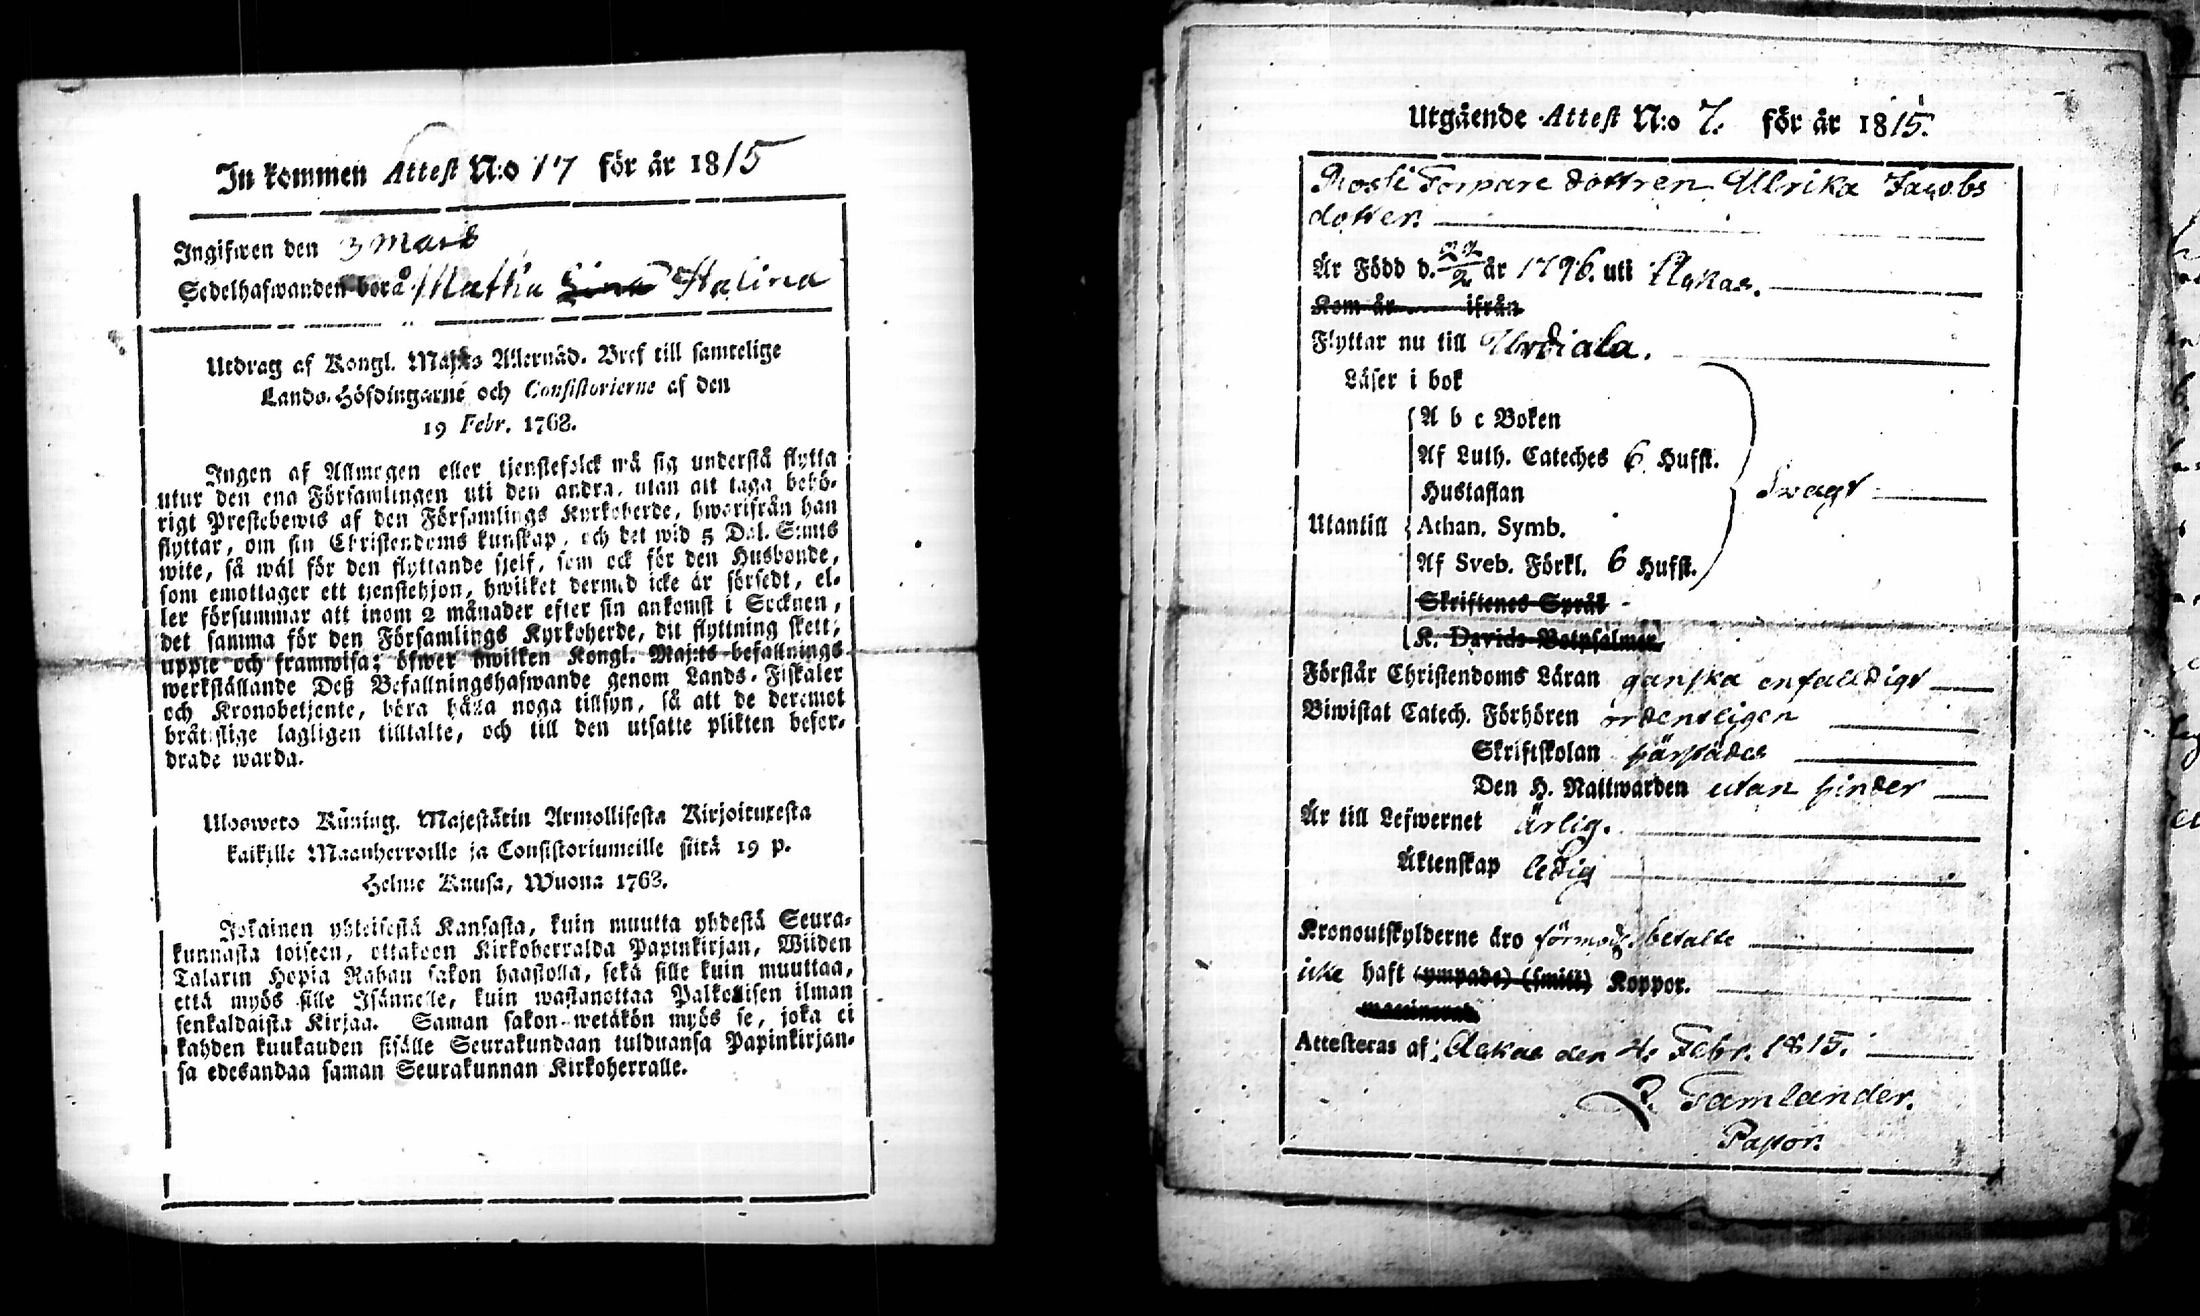 In kommen Attest N:o 17 för år 1815
Ingifwen den 3 Mars
Sedelhafwanden bor å Matku Halina
Utdrag af Kongl. Maj:ts Allernåd. Bref till samtelige
Lands-Höfdingarne och Consistorierne af den
19 Febr. 1768.
Ingen af Allmogen eller tjenstefolck må sig understå flytta
utur den ena Församlingen uti den andra, utan att taga behö-
rigt Prestebewis af den Församlings Kyrkoherde, hwarifrån han
flyttar, om sin Christendoms kunskap, och det wid 5 Dal. S:mts
wite, så wäl för den flyttande sjelf, som ock för den Husbonde,
som emottager ett tjenstehjon, hwilket dermed icke är försedt, el-
ler försummar att inom 2 månader efter sin ankomst i Socknen,
det samma för den Församlings Kyrkoherde, dit flyttning skett,
uppte och framwisa; öfwer hwilken Kongl. Maj:ts befallnings
werkställande Deß Befallningshafwande genom Lands-Fiskaler
och Kronobetjente, böra hålla noga tillsyn, så att de deremot
bråtslige lagligen tilltalte, och till den utsatte plikten befor-
drade warda.
Ulosweto Küning. Majestätin Armollisesta Kirjoituxesta
kaikille Maanherroille ja Consistoriumeille siitä 19 p.
Helme Kuusa, Wuona 1768.
Jokainen yhteisestä Kansasta, kuin muutta yhdestä Seura-
kunnasta toiseen, ottakoon Kirkoherralda Papinkirjan, Wiiden
Talarin Hopia Rahan sakon haastolla, sekä sille kuin muuttaa,
että myös sille Isännelle, kuin wastanottaa Palkollisen ilman
senkaldaista Kirjaa. Saman sakon wetäkön myös se, joka ei
kahden kuukauden sisälle Seurakundaan tulduansa Papinkirjan-
sa edesandaa saman Seurakunnan Kirkoherralle.
Utgående Attest N:o 7. för år 1815.
Torpare dottren Ulrika Jacobs
dotter.
Är Född d. år 1796. uti Akas.
Kom år ifrån
Flyttar nu till Urdiala.
Läser i bok
A b c Boken
Af Luth. Cateches 6 Hufst.
Hustaflan
Swagt
Utantill
Athan. Symb.
Af Sveb. Förkl. 6 Hufst.
Skriftenes Språk
K. Davids Botpsalmer
Förstår Christendoms Läran ganska enfalldigt
Biwistat Catech. Förhören ordentligen
Skriftskolan
Den H. Nattwarden utan hinder
Är till Lefwernet ärlig.
Äktenskap ledig
Kronoutskylderne äro förmodl. betalte
icke haft (ympade) (smitt) Koppor.
Attesteras af; Akas den 4. Febr. 1815.
Tamlander.
Pastor.